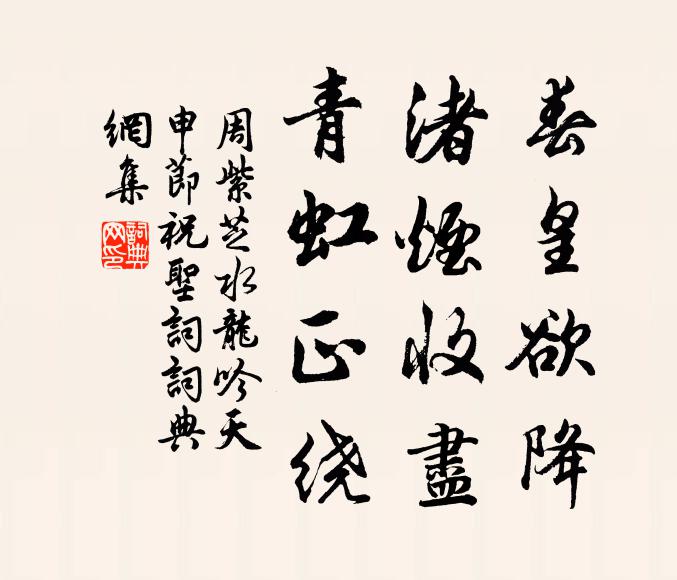 春皇欲降
渚煙收盡
青虹正绕
周紫芝水龍吟天
申節祝聖詞詞典
網集
詞典
网印